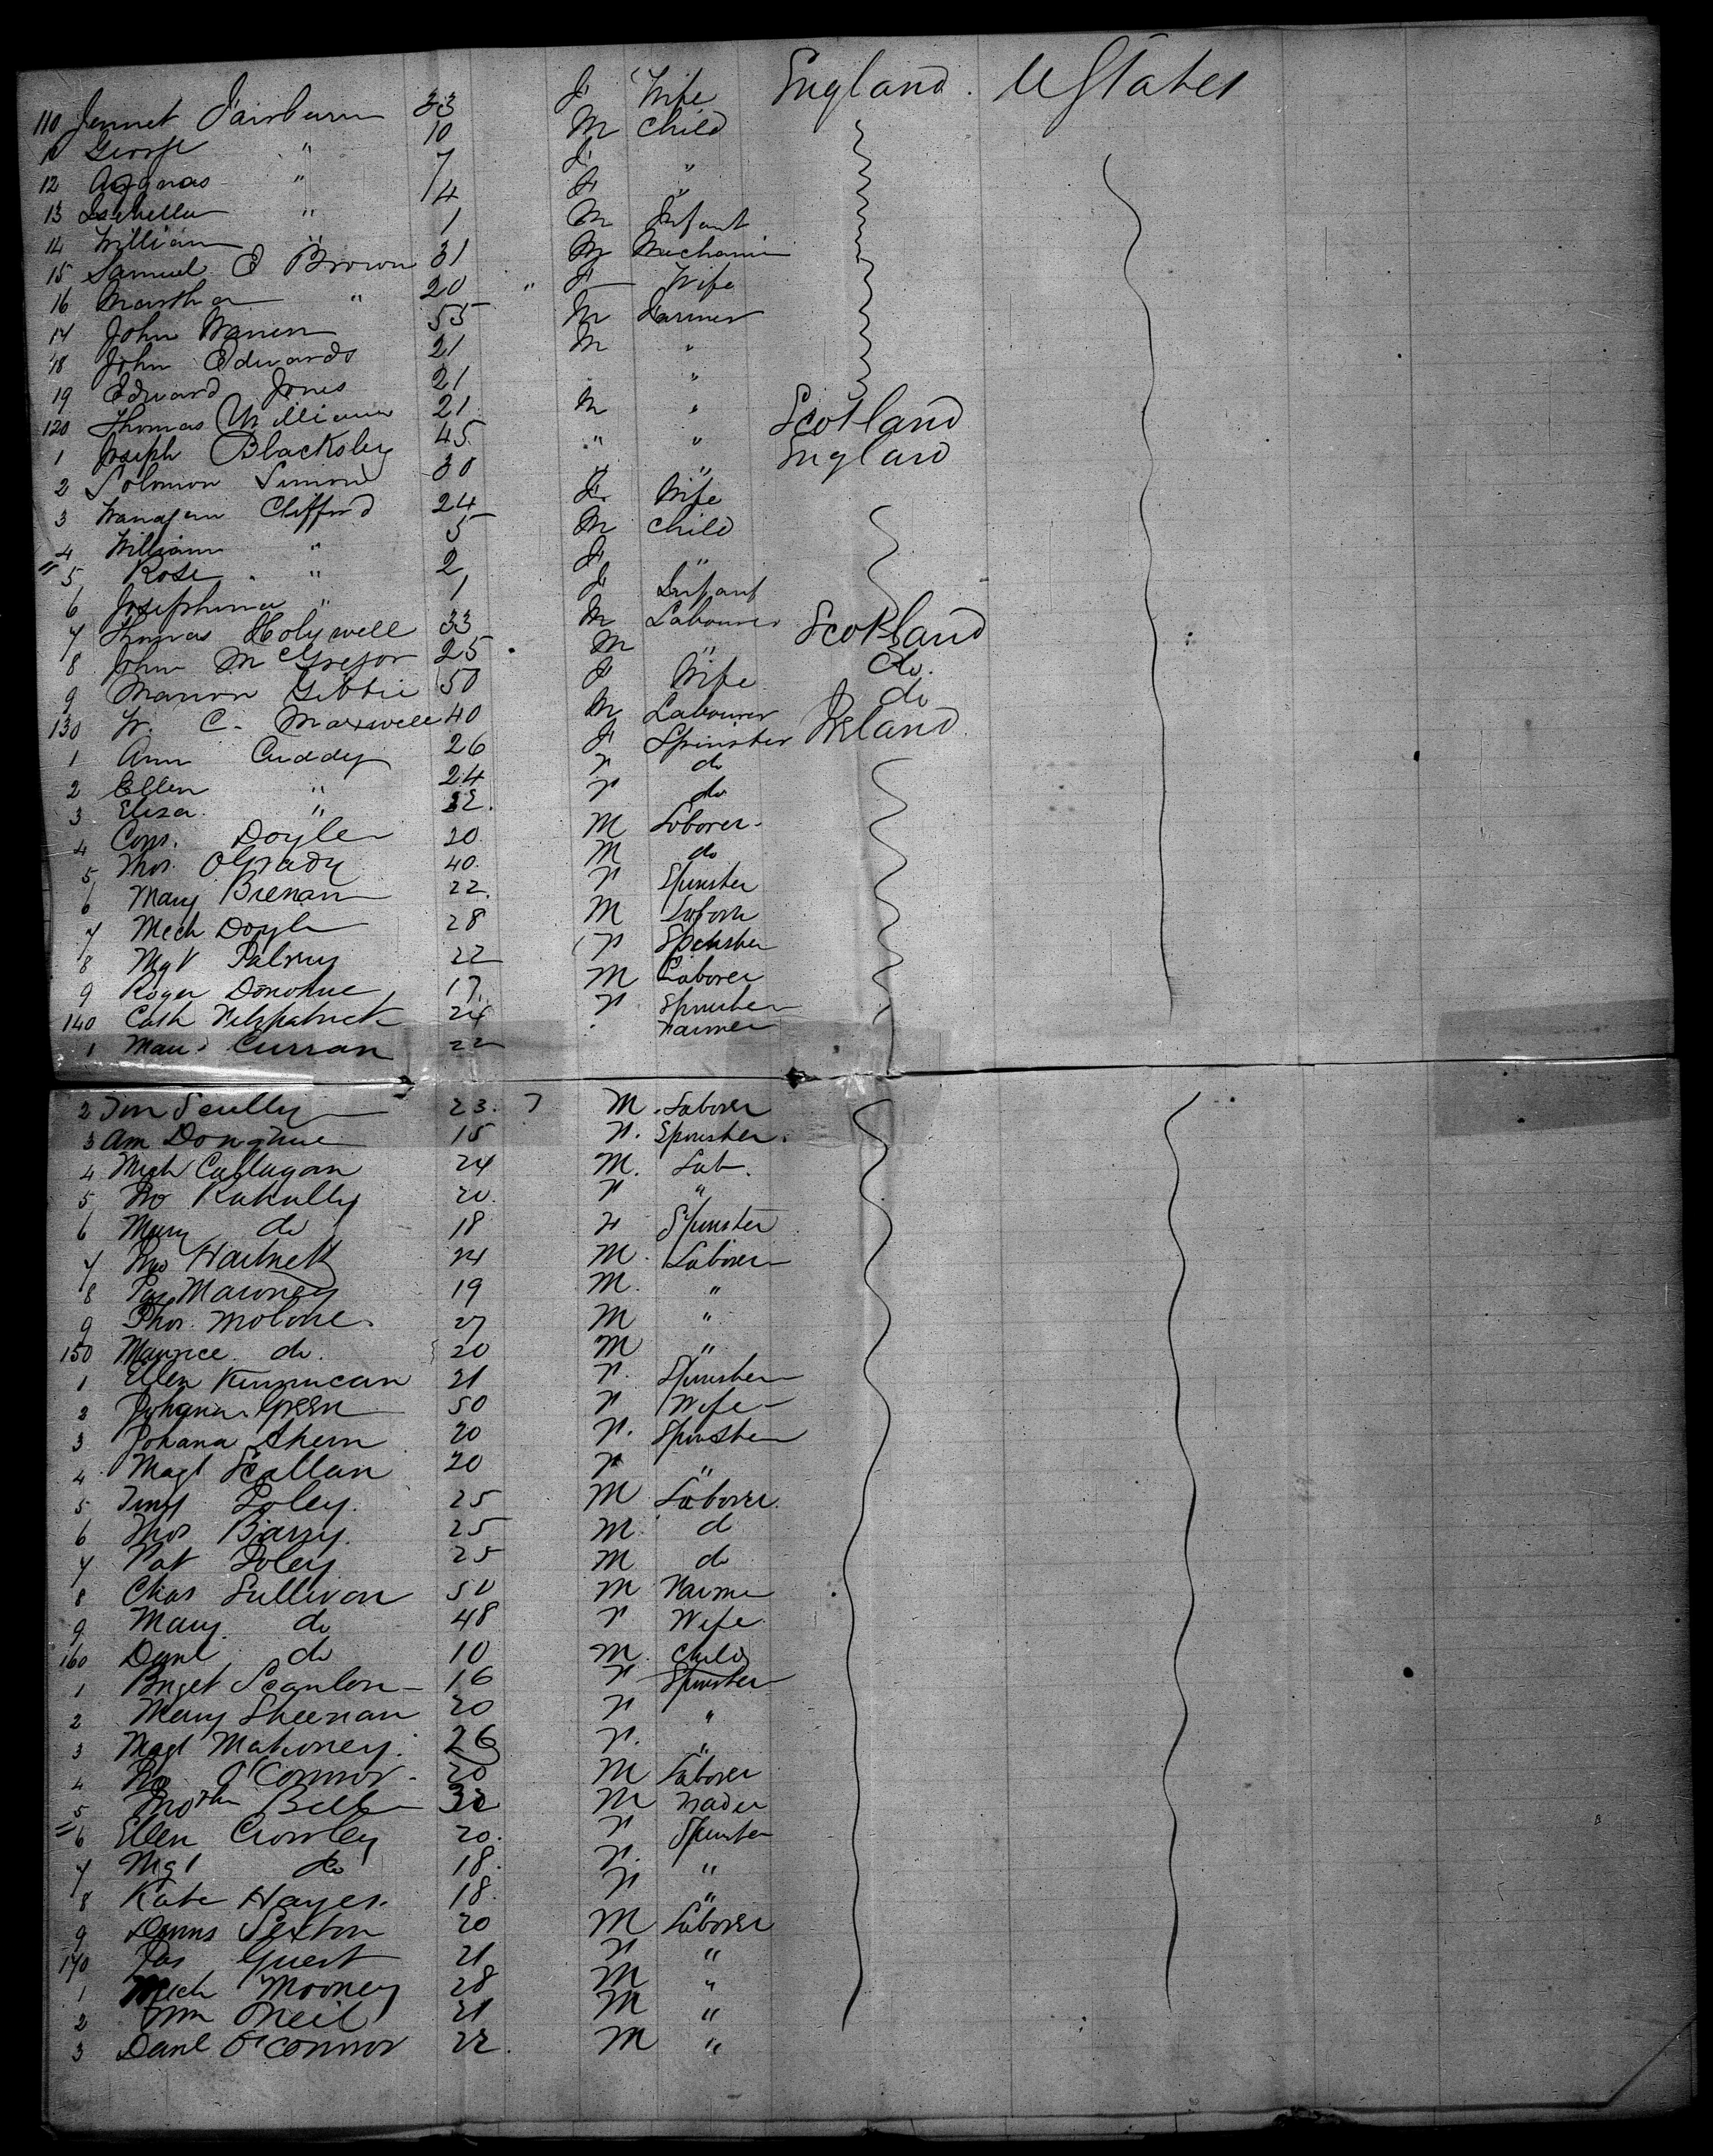 110 Jennet Fairburn 33 F Wife England. UStates
11 George " 10 M Child
12 Aggnas " 7 F "
13 Isabella " 4 F "
14 William " 1 M Infant
15 Samuel E Brown 31 M Mechanic
16 Martha " 20 " F Wife
17 John Warren 55 M Farmer
18 John Edwards 21 M "
19 Edward Jones 21 "
120 Thomas William 21 M " Scotland
1 Joseph Blacksley 45 " " England
2 Solomon Simon 30 " "
3 Clifford 24 F Wife
4 William " 5 M Child
5 Rose " 2 F "
6 Josephina " 1 F Infant
7 Thomas Holywell 33 M Labourer Scotland
8 John McGregor 25 M " do.
9 Marion Gibbie 50 F Wife do
130 W. C. Maxwell 40 M Labourer Ireland
1 Ann Cuddy 26 F Spinster
2 Ellen " 24 F do
3 Eliza " 22. F do
4 Corn. Doyle 20 M Laborer
5 Thos. OGrady 40. M do
6 Mary Brenan 22. F Spinster
7 Mich Doyle 28 M Labore
8 Mgt 22 F Spinster
9 Roger Donohue 17. M Laborer
140 Cath Fitzpatrick 24 F Spinster
1 Curran 22 Farmer
2 Tim Scully 23. M Laborer
3 Ann Donoghue 15 F. Spinster.
4 Mich Callagan 24 M. Lab.
5 Jno 20. F "
6 Mary do 18 F Spinster
7 Jno Hartnett 24 M. Laborer
8 Pat Mawney 19 M. "
9 Thos. Molone. 27 M "
150 Maurice. do. 20 M "
1 Ellen Kinnucan 21 F. Spinster
2 Johana Green 50 F Wife
3 Johana Ahern 20 F. Spinster
4 Magt Scallan 20 F "
5 Timy Foley. 25 M Laborer.
6 Thos Barry. 25 M. do
7 Pat Foley 25 M do
8 Chas Sullivan 50 M Farmer
9 Mary do 48 F Wife
160 Danl do 10 M. Child
1 Briget Scanlon 16 F Spinster
2 Mary Sheenan 20 F "
3 Magt Mahoney. 26 F. "
4 Jno O'Connor 20 M Laborer
5 Bell 32 M Trader
6 Ellen Crowley 20. F Spinster
7 Mgt do 18. F. "
8 Kate Hayes. 18. F "
9 Denns Sexton 20 M Laborer
170 Jas Guest 21 F "
1 Mich Mooney 28 M "
2 Wm Neil 21 M "
3 Danl O'Connor 22. M "